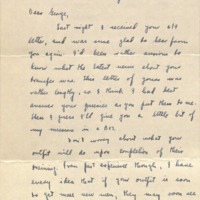 Dear George,
Last night I received your 2/9
letter, and was sure glad to hear from
you again. I'd been rather anxious to
know what the latest news about your
transfer was. This letter of yours was
rather lengthy, so I think I had best
answer your queries as you put them to me.
Then I guess I'll give you a little bit of
my messages in a
Don't worry about what your
outfit will do upon completion of their
training. From past experience though, I have
every idea that if your outfit is soon
to get more new men, they may soon see